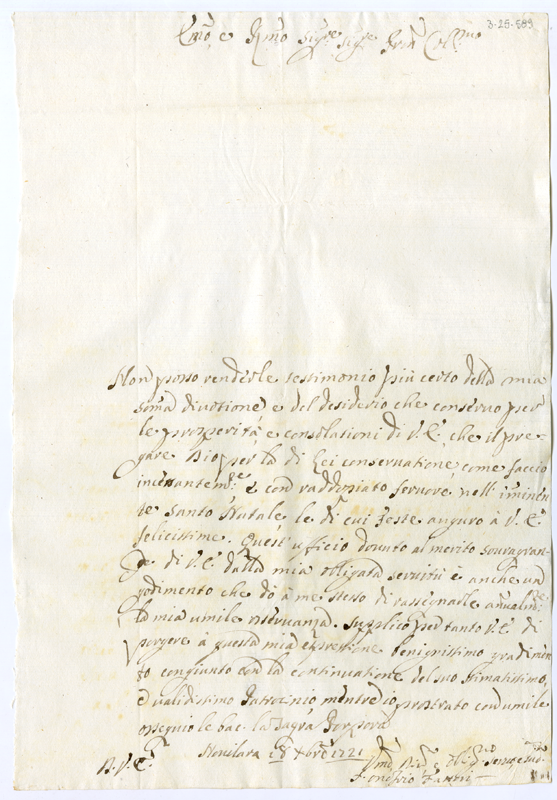 3-25-599
Em̃o, e Rm̃o Sig.re Sig.re Prõn Col.mo
Non posso renderle testimonio più certo della mia
divotione, e del desiderio che conservo per
le prosperità, e consolationi di V. E., che il pre-
gare Dio per la di Lei conservatione, come faccio
incessantem.te, e con raddopiato fervore nell'iminen
te Santo Natale, le di cui feste auguro à V. E.
felicissime. Quest'ufficio dovuto al merito sovragran-
de di V. E. dalla mia obligata servitù è anche un
godimento che dò à me stesso di rassegnarle
la mia umile osservanza. Supplico per tanto V. E. di
porgere à questa mia espressione benignissimo gradimen
to congiunto con la continuatione del suo stimatissimo,
e validissimo Patrocinio mentre io prostrato con umile
ossequio le bac. la Sagra Porpora
D. V. E. Novilara 18 Xbre 1721